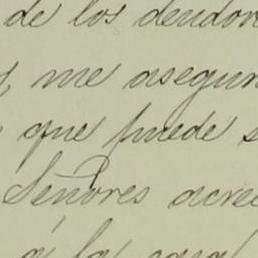 de los deudor
me asegur
que puede s
Señores acree
á la